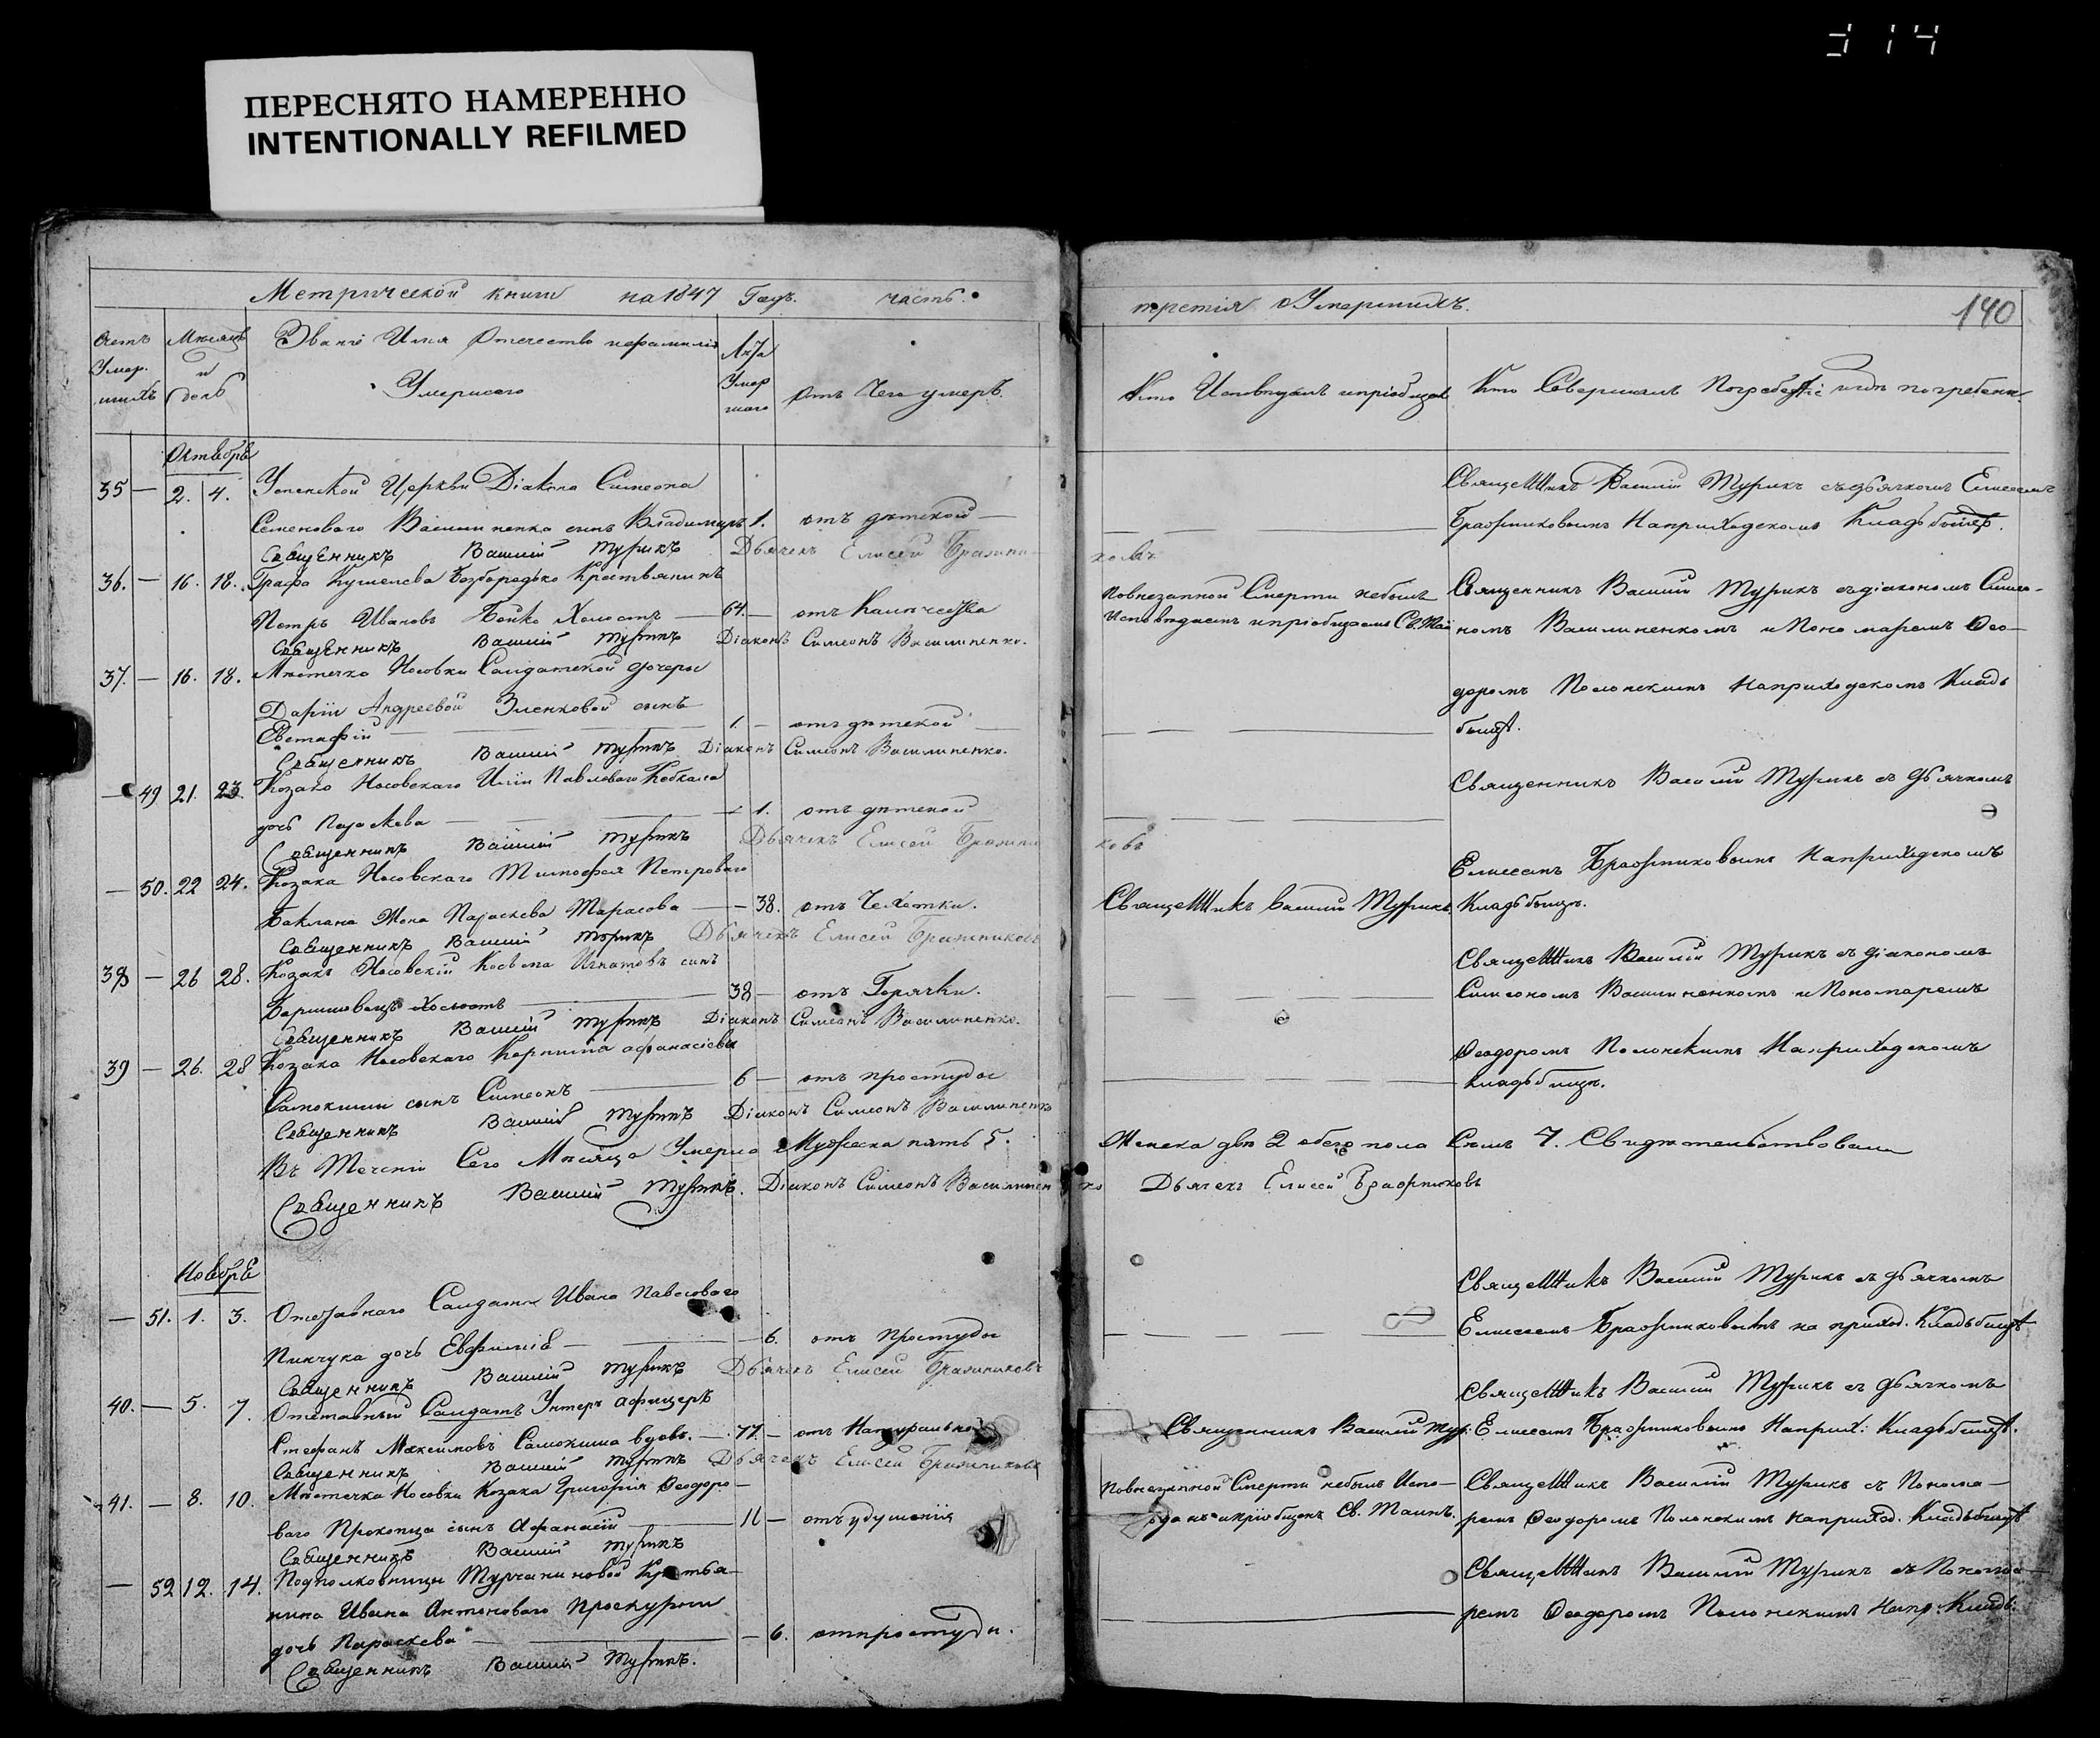 314
ПЕРЕСНЯТО НАМЕРЕННО
INTENTIONALLY REFILMED
Метрической книги на 1847 Годъ. часть
третія о Умершихъ.
140
Счетъ Умер. шихъ
Мѣсяцъ и день
Званіе Имя Отечество и фамилія Умершаго
Лѣта Умер шаго
Отъ Чего умеръ.
Кто Исповѣдалъ и пріобщалъ
Кто Совершалъ Погребеніе и гдѣ погребены.
Октябрь
35 — 2. 4. Успенской Церкви Діакона Симеона
Семеноваго Василиненка сынъ Владимиръ 1. отъ дѣтской
Священникъ Василій Турикъ Дьячекъ Елисей Бражниковъ
Священникъ Василій Турикъ съ дьячкомъ Елисеемъ
Бражниковымъ На приходскомъ Кладьбищѣ.
36. — 16. 18. Графа Кушелева Безбородько Крестьянинъ
Петръ Ивановъ Бойко Холостъ — 64. — отъ
Священникъ Василій Турикъ Діаконъ Симеонъ Василиненко.
По внезапной Смерти небылъ
Исповѣданъ и пріобщенъ Св. Таи
Священникъ Василій Турикъ съ діакономъ Симео-
номъ Василиненкомъ и Пономаремъ Ѳео-
37. — 16. 18. Мѣстечка Носовки Салдатской дочери
Даріи Андреевой Зленковой сынъ
Евстафій 1 — отъ дѣтской
Священникъ Василій Турикъ Діаконъ Симеонъ Василиненко.
доромъ Полонскимъ На приходскомъ Кладь
бищѣ.
— 49 21. 23. Козака Носовскаго Иліи Павловаго
дочь Параскева 1. отъ дѣтской
Священникъ Василій Турикъ Дьячекъ Елисей Бражниковъ
Священникъ Василій Турикъ съ дьячкомъ
Елисеемъ Бражниковымъ На приходскомъ
— 50. 22 24. Козака Носовскаго Тимофея Петроваго
Баклана Жена Параскева Тарасова — 38. отъ Чехотки.
Священникъ Василій Турикъ Дьячекъ Елисей Бражниковъ
Священникъ Василий Турикъ. Кладьбищѣ.
38 — 26 28. Козакъ Носовскій Косьма Игнатовъ сынъ
холостъ 38 — отъ Горячки.
Священникъ Василій Турикъ Діаконъ Симеонъ Василиненко.
Священникъ Василій Турикъ съ діакономъ
Симеономъ Василиненкомъ и Пономаремъ
39 — 26. 28 Козака Носовскаго афанасіева
Самокиши сынъ Симеонъ 6 — отъ простуды
Священникъ Василій Турикъ Діаконъ Симеонъ Василиненко
Ѳеодоромъ Полонскимъ На приходскомъ
Кладьбищѣ.
Въ Теченіи Сего Мѣсяца Умерло Мужеска пять 5. Женска двѣ 2 обего пола Семь 7. Свидѣтельствовали
Священникъ Василій Турикъ. Діаконъ Симеонъ Василиненко Дьячекъ Елисей Бражниковъ
Ноябрь
— 51. 1. 3. Отставнаго Салдата Ивана Павловаго
Пинчука дочь Евфимія — 6. отъ простуды
Священникъ Василій Турикъ Дьячекъ Елисей Бражниковъ
Священникъ Василій Турикъ съ дьячкомъ
Елисеемъ Бражниковымъ на приход. Кладьбищѣ
40. — 5. 7. Отставный Салдатъ Унтеръ афицеръ
Стефанъ Максимовъ Самокиша вдовъ. — 77. — отъ Натуральной
Священникъ Василій Турикъ Дьячекъ Елисей Бражниковъ
Священникъ Василій Тур:
Священникъ Василій Турикъ съ дьячкомъ
Елисеемъ Бражниковымъ На прих: Кладьбищѣ.
41. — 8. 10. Мѣстечка Носовки Козака Григорія Ѳеодоро-
ваго Прокопца сынъ Афанасій 11 — отъ удушенія
Священникъ Василій Турикъ
По внезапной Смерти небылъ Испо-
вѣданъ и пріобщенъ Св. Таинъ.
Священникъ Василій Турикъ съ Понома-
ремъ Ѳеодоромъ Полонскимъ на приход. Кладьбищѣ
— 52 12. 14. Подполковницы Турчаниновой Крестья-
нина Ивана Антоноваго Проскурни
дочь Параскева — 6. от простуди.
Священникъ Василій Турикъ.
Священникъ Василій Турикъ съ Понома-
ремъ Ѳеодоромъ Полонскимъ На пр. Кладь: